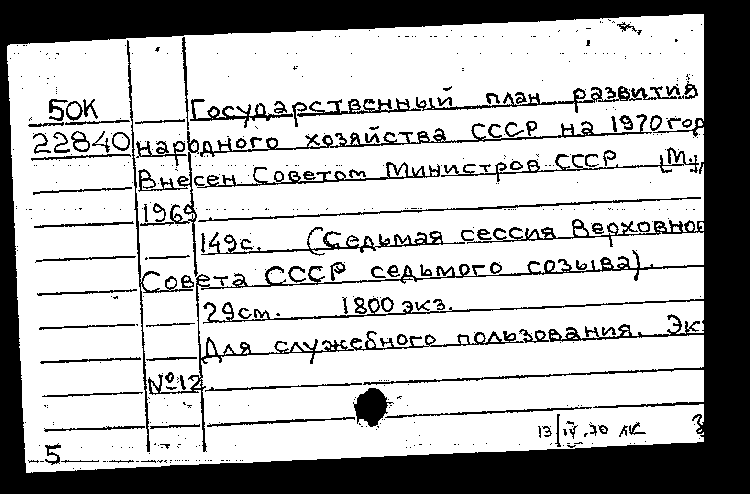 50К Государственный план развития
22840 народного хозяйства СССР на 1970 год
Внесен Советом Министров СССР [М.,
1969.
149с. (Седьмая сессия Верховно
Совета СССР седьмого созыва).
29см. 1800 экз.
Для служебного пользования. Экз
№12.
13/IV.70
5